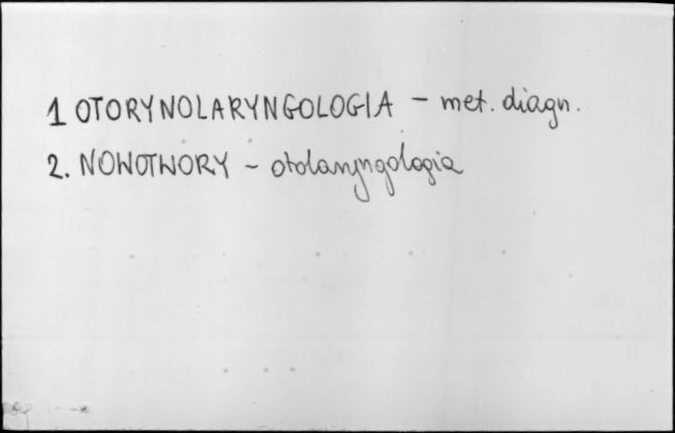 1 OTORYNOLARYNGOLOGIA - met. diagn.
2. NOWOTWORY - otolaryngologia